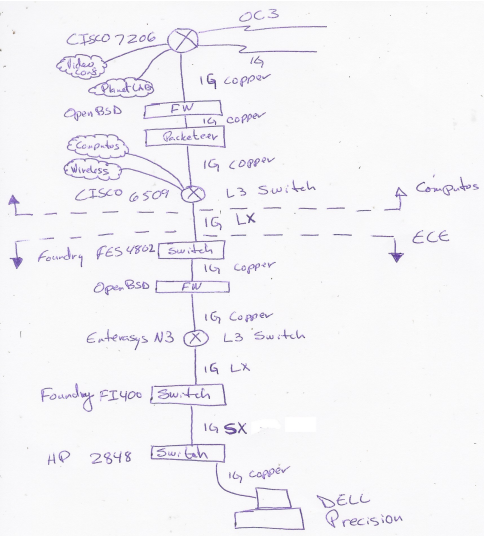 OC3
CISCO 7206
1G
Video Cons
PlanetLAB
1G Copper
OpenBSD FW
1G copper
Packeteer
Computos
1G Copper
Wireless
CISCO 6509 L3 Switch
Cómputos
1G LX
ECE
Foundry FES4802 Switch
1G Copper
OpenBSD FW
1G Copper
Enterasys N3 L3 Switch
1G LX
Foundry FI400 Switch
1G SX
HP 2848 Switch
1G copper
DELL
Precision